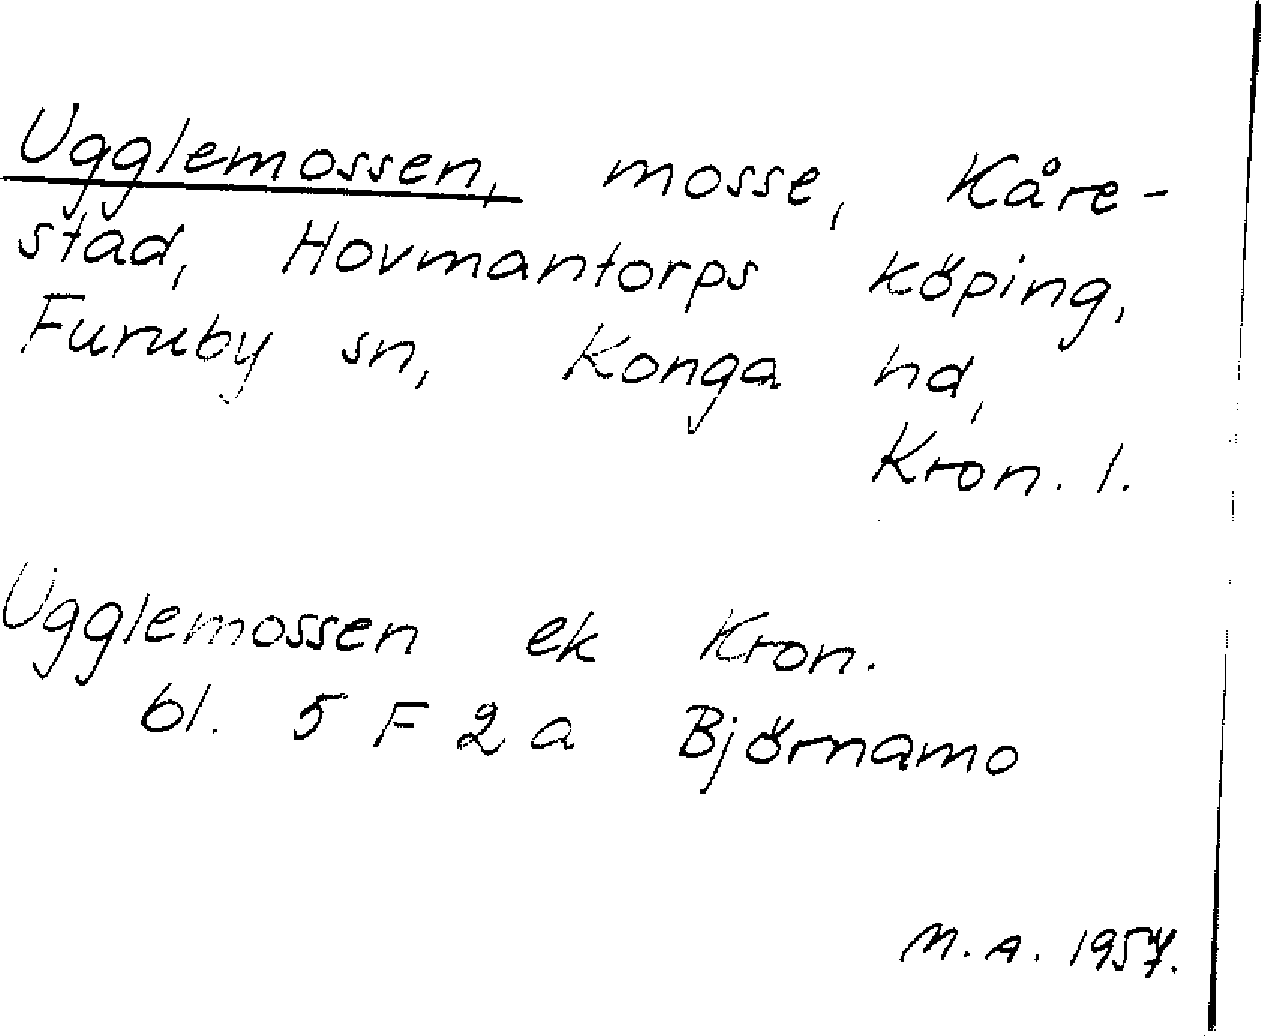 Ugglemossen, mosse, Kåre-
stad, Hovmantorps köping,
Furuby sn, Konga hd,
Kron. l.
Ugglemossen ek Kron.
bl. 5 F 2 a Björnamo
M. A. 1957.